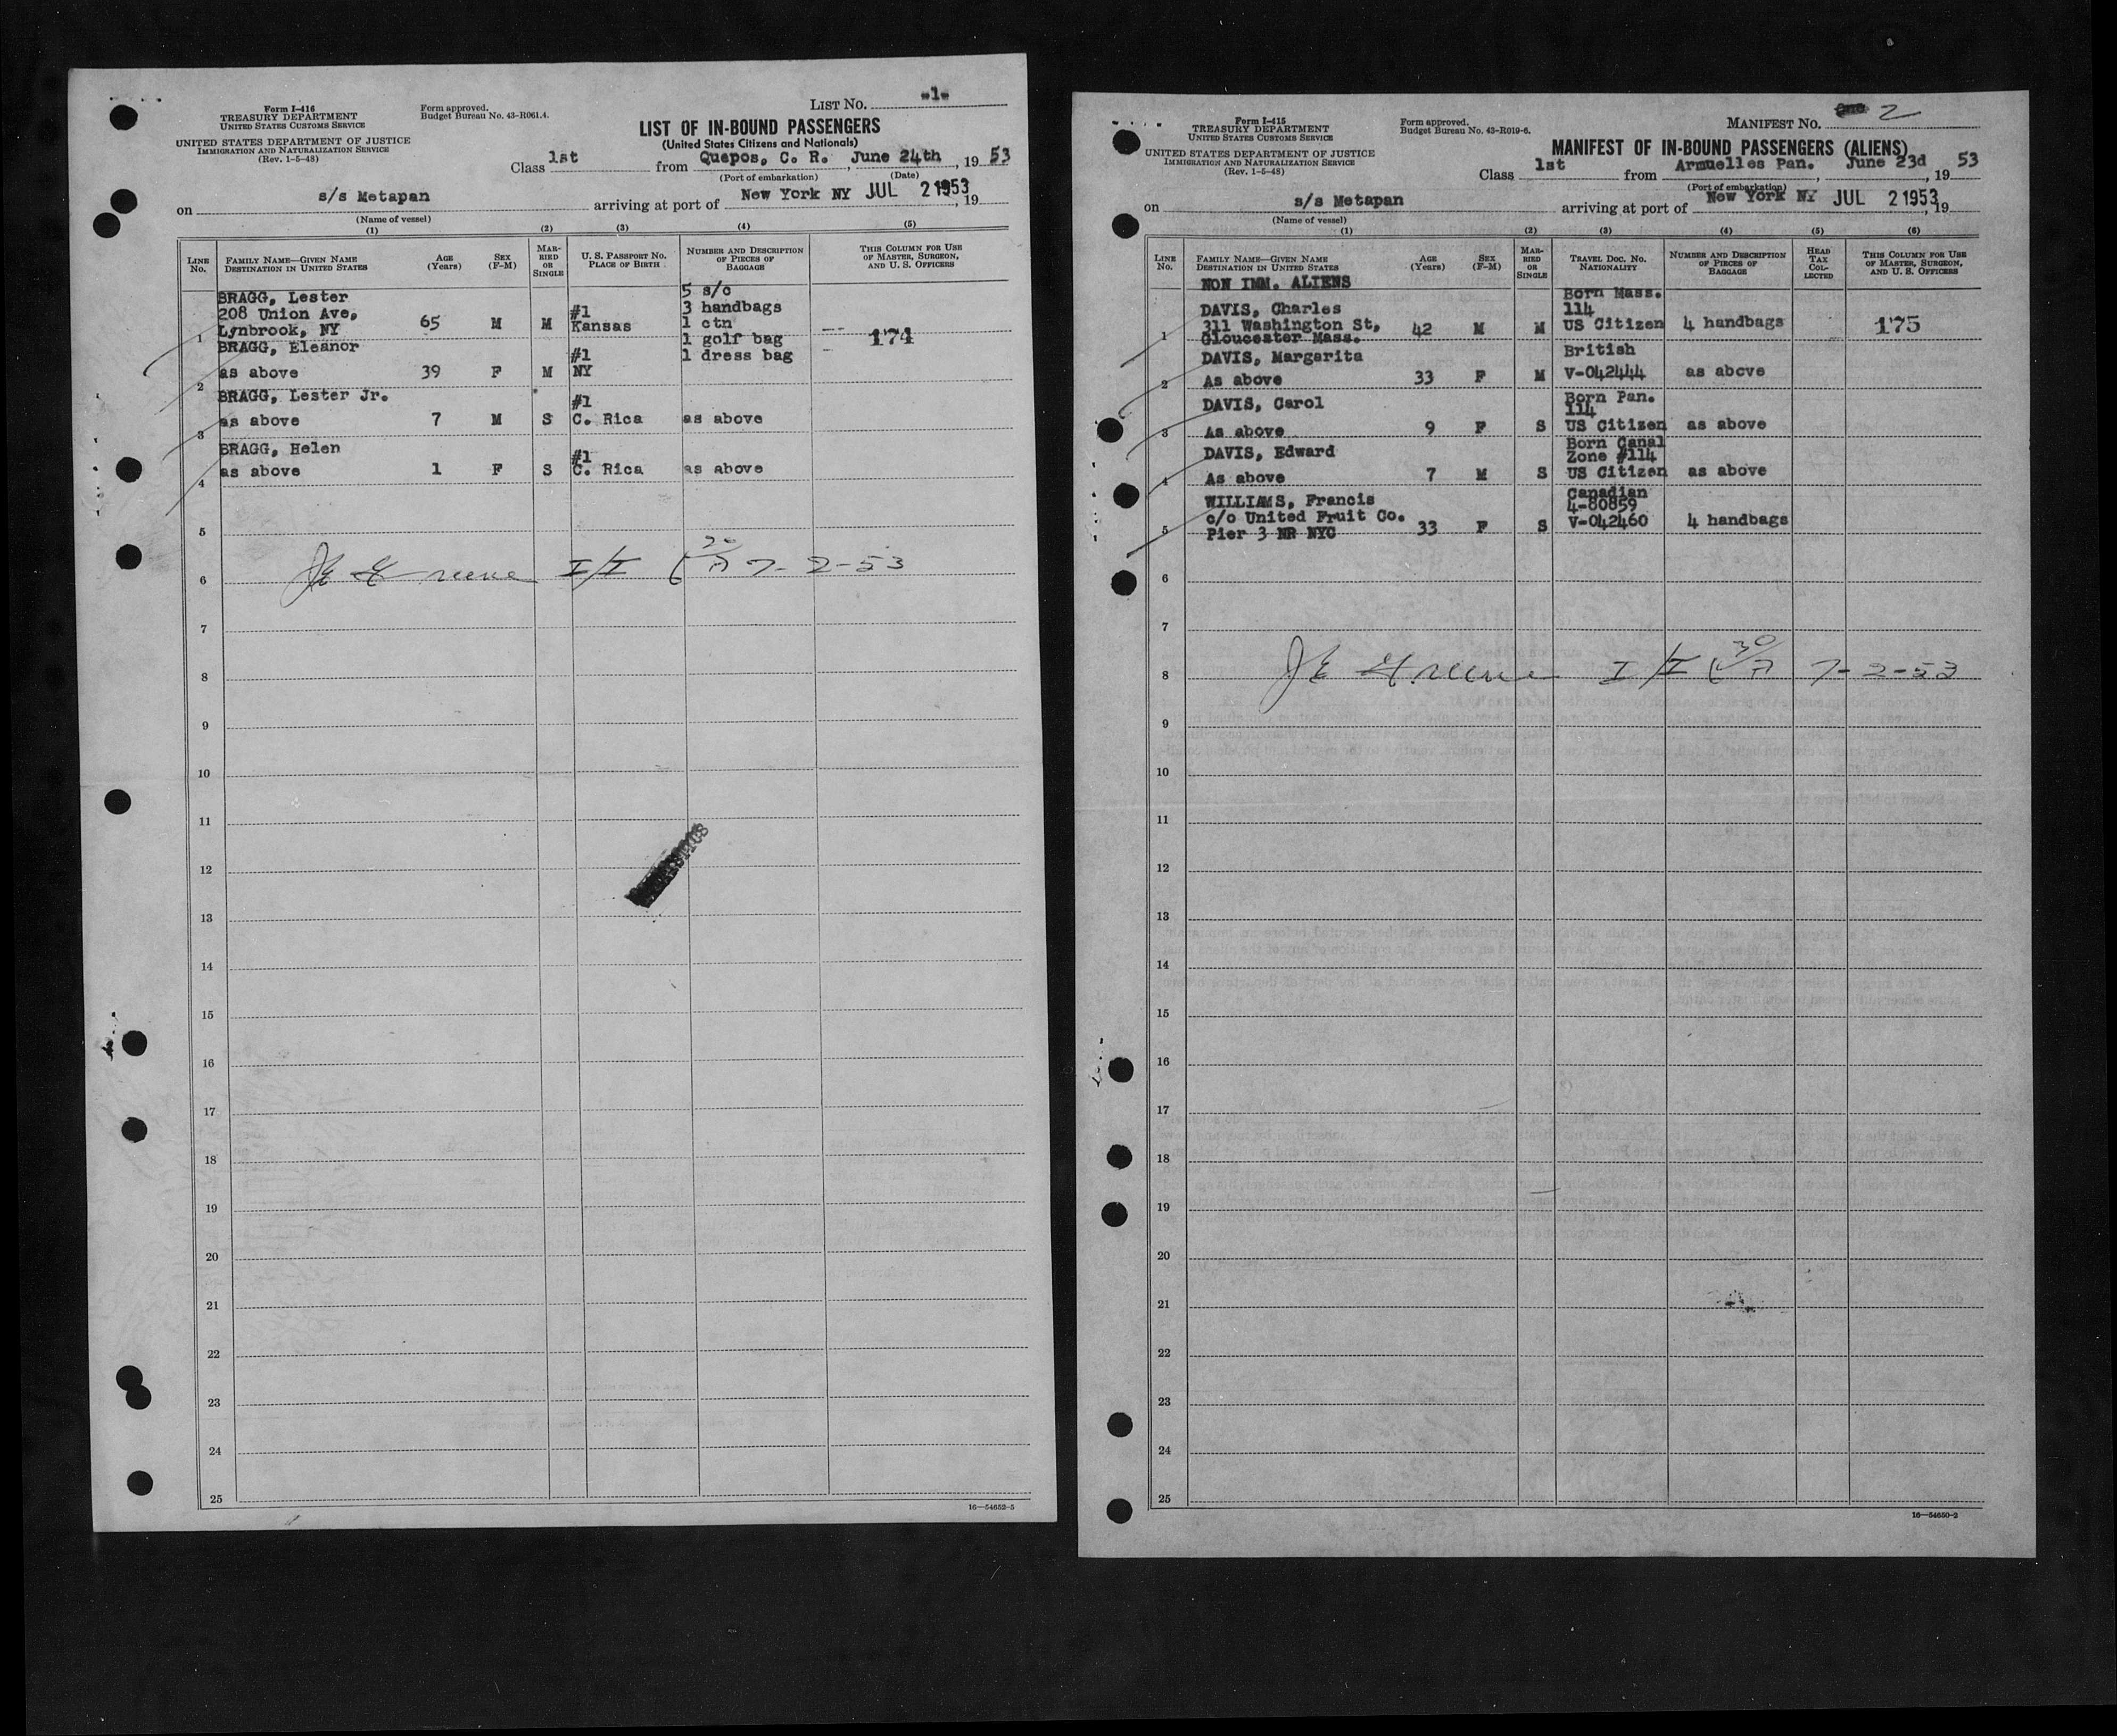 Form I-416
TREASURY DEPARTMENT
UNITED STATES CUSTOMS SERVICE
UNITED STATES DEPARTMENT OF JUSTICE
IMMIGRATION AND NATURALIZATION SERVICE
(Rev. 1-5-48)
Form approved.
Budget Bureau No. 43-R061.4.
LIST NO. -1-
LIST OF IN-BOUND PASSENGERS
(United States Citizens and Nationals)
Class 1st from Quepos, C. R., June 24th, 1953
(Port of embarkation) (Date)
on s/s Metapan arriving at port of New York NY JUL 2 1953, 19
(Name of vessel)
(1) (2) (3) (4) (5)
LINE NO. FAMILY NAME—GIVEN NAME DESTINATION IN UNITED STATES AGE (Years) SEX (F-M) MARRIED OR SINGLE U. S. PASSPORT NO. PLACE OF BIRTH NUMBER AND DESCRIPTION OF PIECES OF BAGGAGE THIS COLUMN FOR USE OF MASTER, SURGEON, AND U. S. OFFICERS
5 s/c
BRAGG, Lester 3 handbags
208 Union Ave, #1 1 ctn
1 Lynbrook, NY 65 M M Kansas 1 golf bag 174
BRAGG, Eleanor #1 1 dress bag
2 as above 39 F M NY
BRAGG, Lester Jr. #1
3 as above 7 M S C. Rica as above
BRAGG, Helen #1
4 as above 1 F S C. Rica as above
5
6 JE Greene I/I 7-2-53
7
8
9
10
11
12
13
14
15
16
17
18
19
20
21
22
23
24
25
16—54652-5
Form I-415
TREASURY DEPARTMENT
UNITED STATES CUSTOMS SERVICE
UNITED STATES DEPARTMENT OF JUSTICE
IMMIGRATION AND NATURALIZATION SERVICE
(Rev. 1-5-48)
Form approved.
Budget Bureau No. 43-R019-6.
MANIFEST NO. 2
MANIFEST OF IN-BOUND PASSENGERS (ALIENS)
Class 1st from Armuelles Pan., June 23d, 1953
(Port of embarkation)
on s/s Metapan arriving at port of New York NY JUL 2 1953, 19
(Name of vessel)
(1) (2) (3) (4) (5) (6)
LINE NO. FAMILY NAME—GIVEN NAME DESTINATION IN UNITED STATES AGE (Years) SEX (F-M) MARRIED OR SINGLE TRAVEL DOC. NO. NATIONALITY NUMBER AND DESCRIPTION OF PIECES OF BAGGAGE HEAD TAX COLLECTED THIS COLUMN FOR USE OF MASTER, SURGEON, AND U. S. OFFICERS
NON IMM. ALIENS
Born Mass.
DAVIS, Charles 114
1 311 Washington St, 42 M M US Citizen 4 handbags 175
Gloucester Mass.
DAVIS, Margarita British
2 As above 33 F M V-042444 as above
DAVIS, Carol Born Pan.
114
3 As above 9 F S US Citizen as above
DAVIS, Edward Born Canal
Zone #114
4 As above 7 M S US Citizen as above
WILLIAMS, Francis Canadian
4-80859
c/o United Fruit Co. V-042460 4 handbags
5 Pier 3 NR NYC 33 F S
6
7
8 JE Greene I/I 7-2-53
9
10
11
12
13
14
15
16
17
18
19
20
21
22
23
24
25
16—54650-2